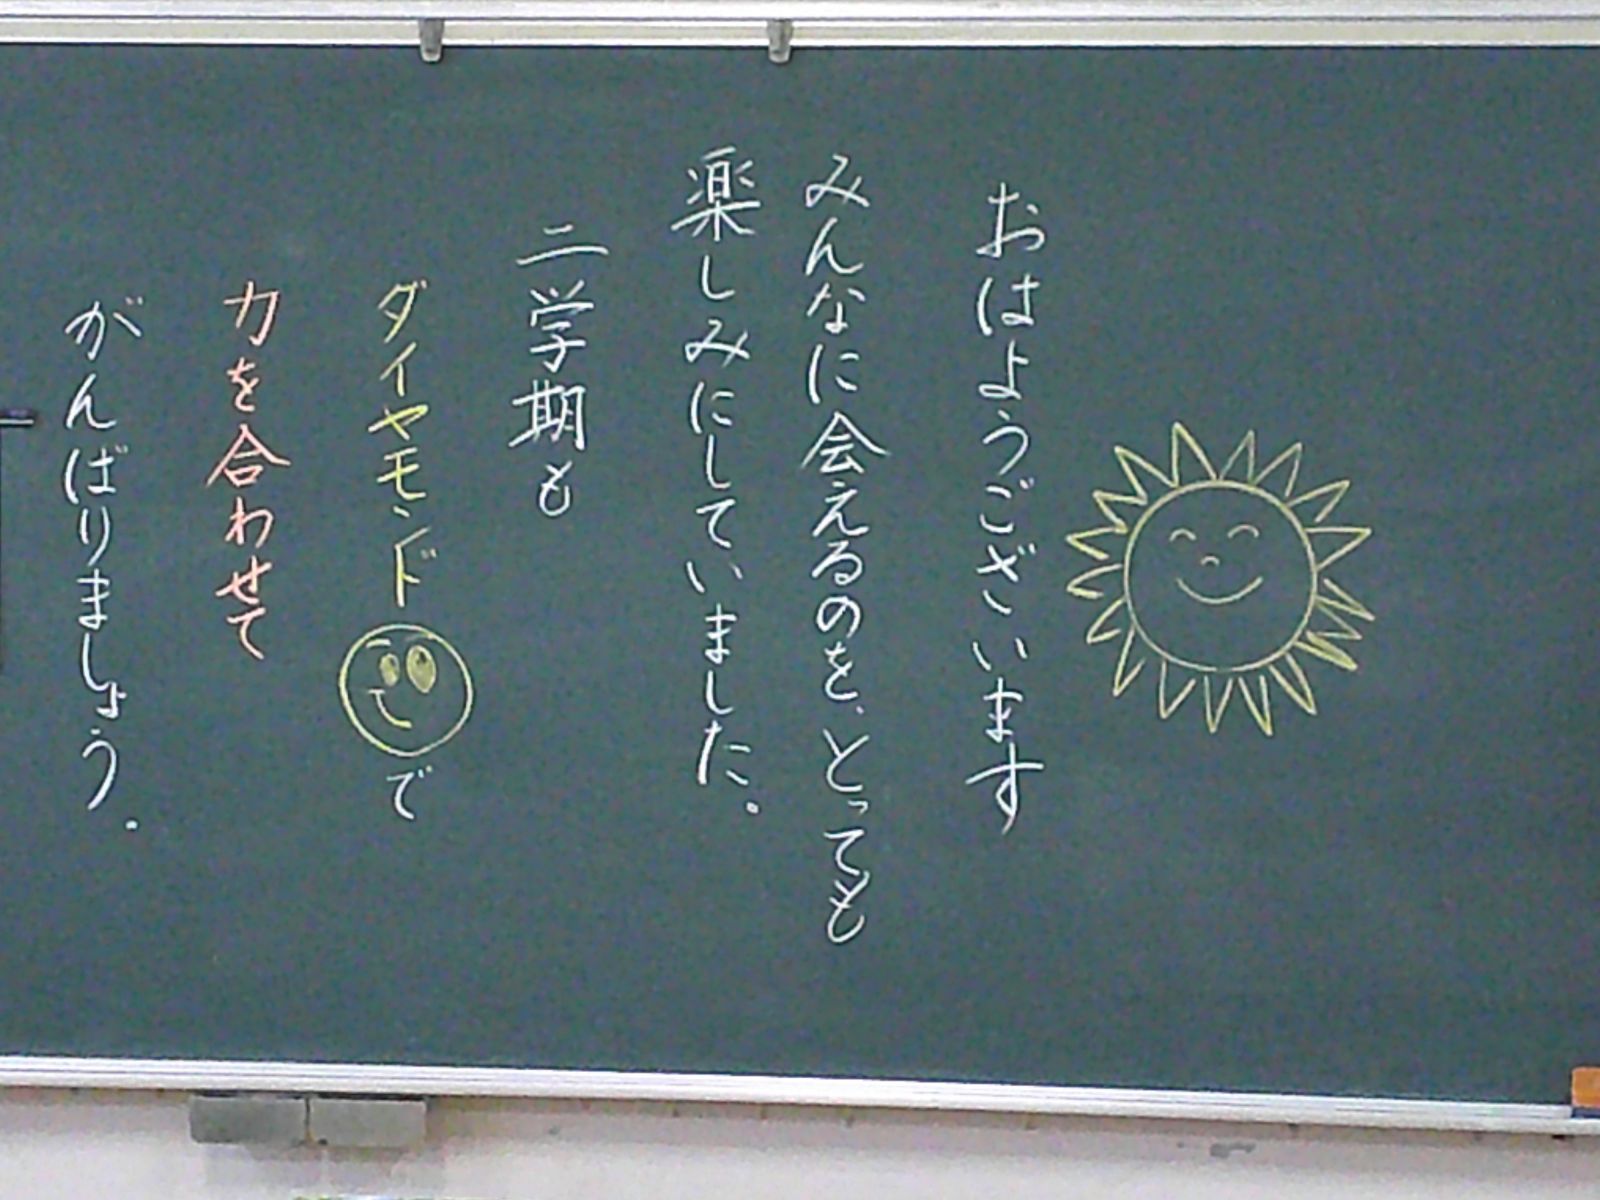 おはようございます
みんなに会えるのを、とっても
楽しみにしていました。
二学期も
ダイヤモンドで
力を合わせて
がんばりましょう。